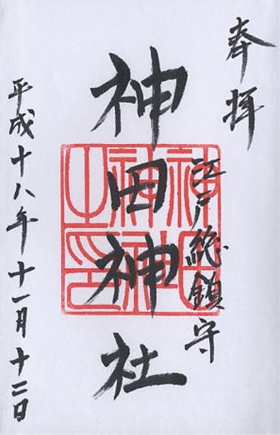 奉拝
江戸総鎮守
神田神社
平成十八年十一月十二日